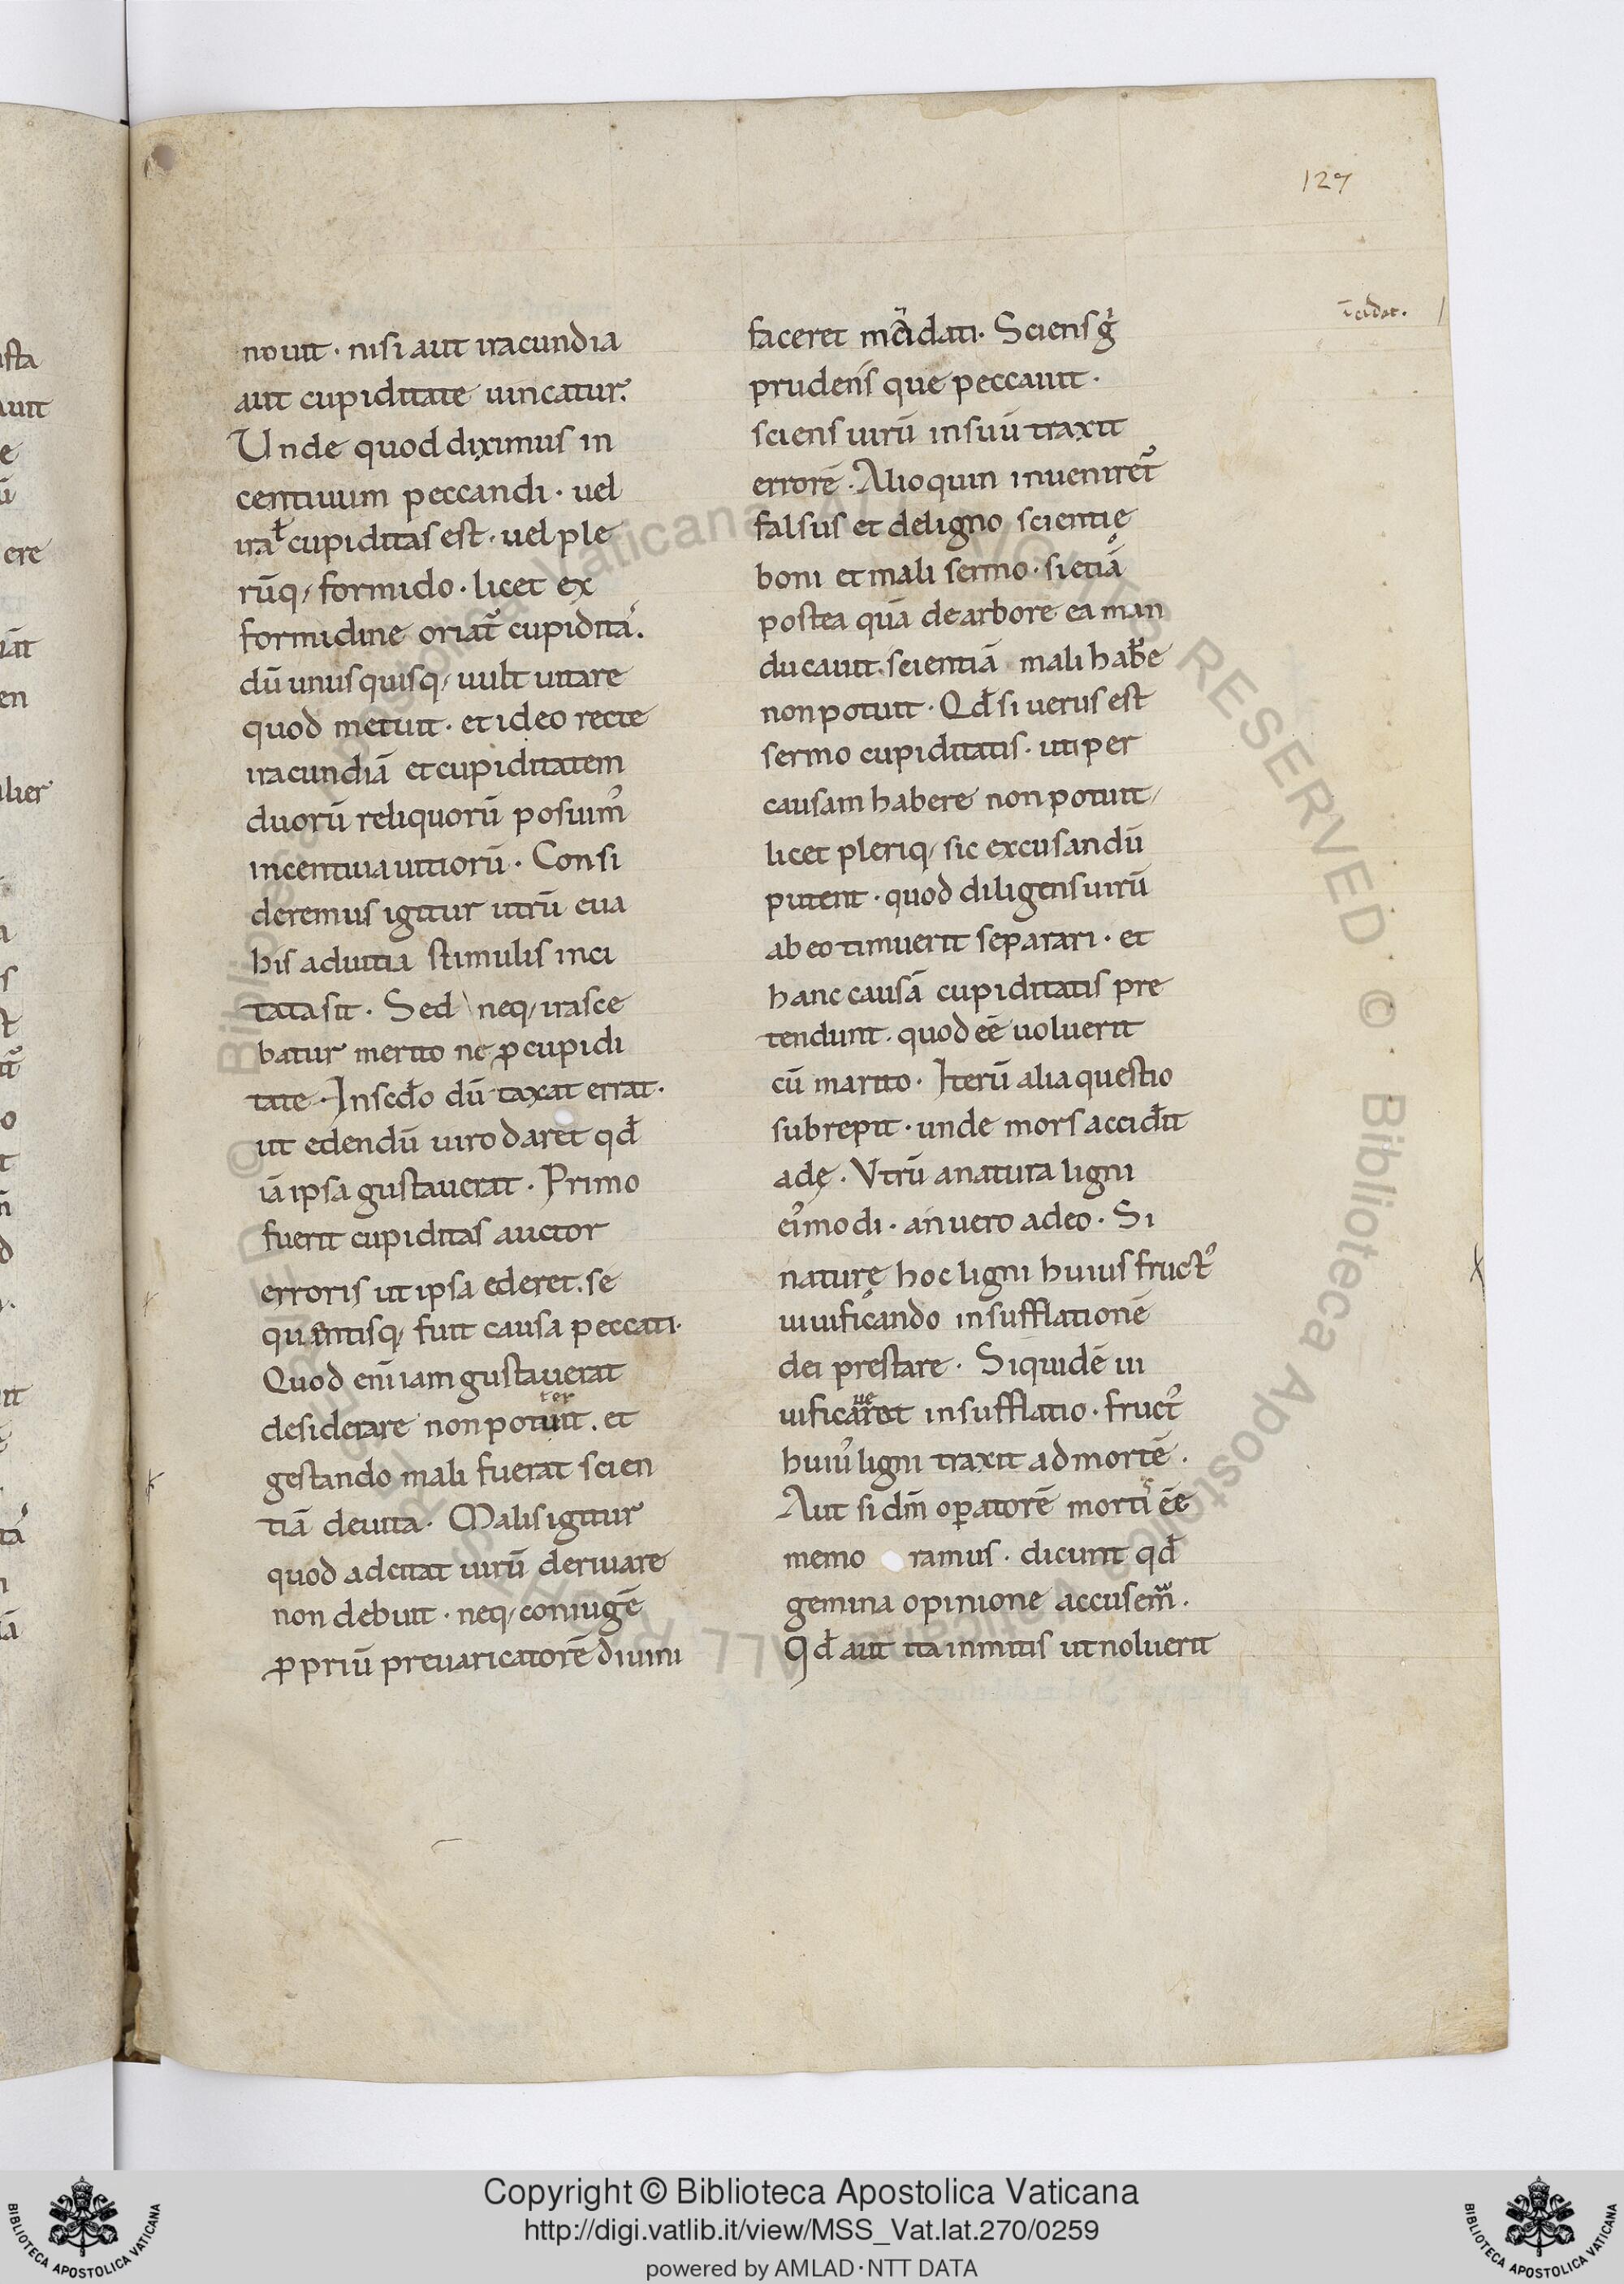 127
icidet.
nouit · nisi aut iracundia
aut cupiditate uincatur.
Unde quod diximus in
centiuum peccandi · uel
ira ł cupiditas est · uel ple
rūq; formido · licet ex
formidine oriat᷑ cupidita᷑.
dū unusquisq; uult uitare
quod metuit · et ideo recte
iracundiā et cupiditatem
duorū reliquorū posuim᷒
incentiua uitiorū · Consi
deremus igitur utrū eua
his aduitia stimulis inci
tata sit · Sed neq; irasce
batur merito ne ꝓ cupidi
tate · In scđo dū taxat errat ·
ut edendū uiro daret qđ
iā ipsa gustauerat · Primo
fuerit cupiditas auctor
erroris ut ipsa ederet. se
quentisq; fuit causa peccati ·
Quod enī iam gustauerat
ter
desiderare non potuit . et
gestando mali fuerat scien
tiā deuita · Malis igitur
quod adcitat uirū deriuare
non debuit · neq; coniugē
ꝓpriū preuaricatorē diuini
faceret mādati · Sciens g̊
prudens que peccauit ·
sciens uirū in suū traxit
errorē · Alioquin inueniret᷑
falsus et de ligno scientię
boni et mali sermo · si etiā
postea quā de arbore ea man
ducauit. scientiā mali hab̄e
non potuit · Qđ si uerus est
sermo cupiditatis · uti per
causam habere non potuit
licet pleriq; sic excusandū
putent · quod diligens uirū
ab eo timuerit separari · et
hanc causā cupiditatis pre
tendunt · quod eē uoluerit
cū marito · Iterū alia questio
subrepit · unde mors accid̄it
adę · Vtrū a natura ligni
ei᷒modi · an uero a deo · Si
naturę hoc ligni huius fruct᷒
uiuificando insufflationē
dei prestare · Siquidē ui
ue
uificaret insufflatio · fruct᷒
huiu᷒ ligni traxit ad mortē ·
Aut si dm̄ oꝑatorē morti᷒ eē
memo ramus · dicunt qđ
gemina opinione accusem᷒ ·
Qđ aut ita inmitis ut noluerit
Copyright © Biblioteca Apostolica Vaticana
http://digi.vatlib.it/view/MSS_Vat.lat.270/0259
powered by AMLAD·NTT DATA